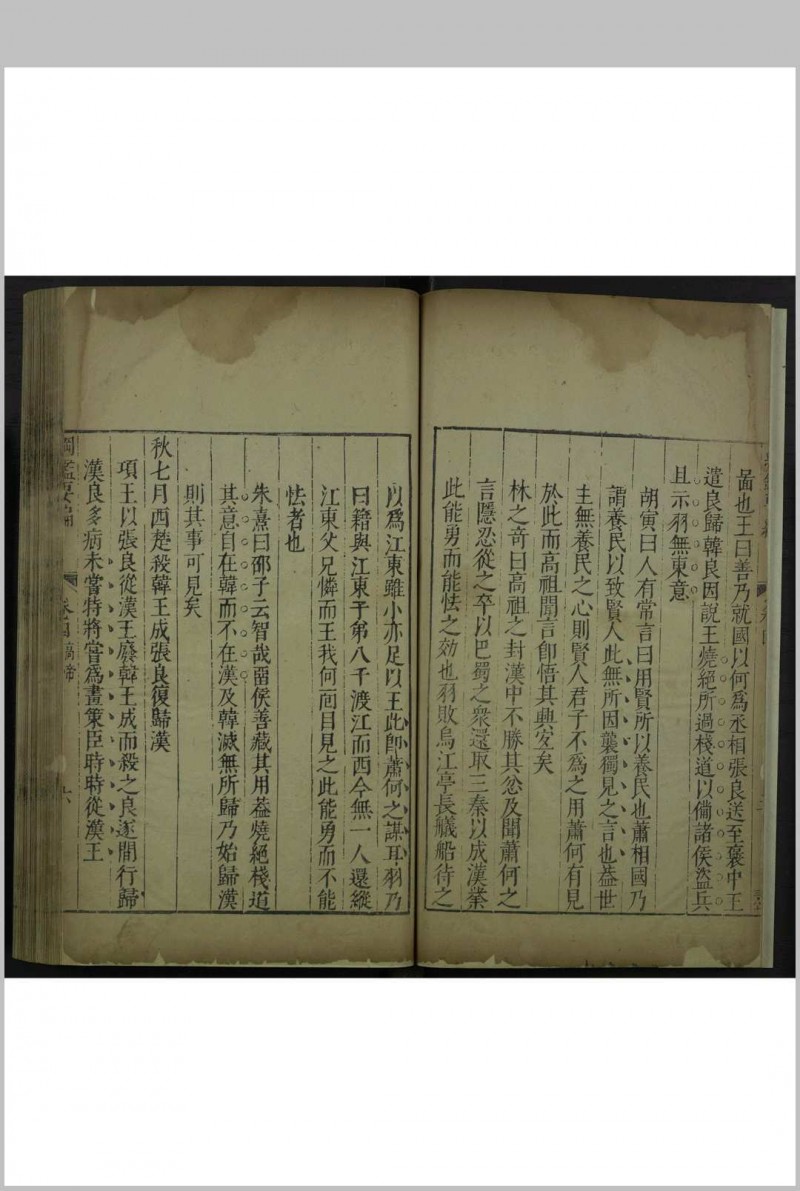 啚也王曰善乃就國以何爲丞相張良送至褒中王
遣良歸韓良因說王燒絕所過棧道以備諸侯盜兵
且示羽無東意
胡寅曰人有常言曰用賢所以養民也蕭相國乃
謂養民以致賢人此無所因襲獨見之言也葢世
主無養民之心則賢人君子不爲之用蕭何有見
於此而高祖聞言卽悟其興宐矣
林之奇曰高祖之封漢中不勝其忿及聞蕭何之
言隱忍從之卒以巴蜀之衆還取三秦以成漢業
此能勇而能怯之効也羽敗烏江亭長艤船待之
以爲江東雖小亦足以王此卽蕭何之謀耳羽乃
曰籍與江東子弟八千渡江而西今無一人還縱
江東父兄憐而王我何面目見之此能勇而不能
怯者也
朱熹曰邵子云智哉畱侯善藏其用葢燒絕棧道
其意自在韓而不在漢及韓滅無所歸乃始歸漢
則其事可見矣
秋七月西楚殺韓王成張良復歸漢
項王以張良從漢王廢韓王成而殺之良遂間行歸
漢良多病未嘗特將嘗爲畫策臣時時從漢王
綱鑑要編 卷四高帝 六